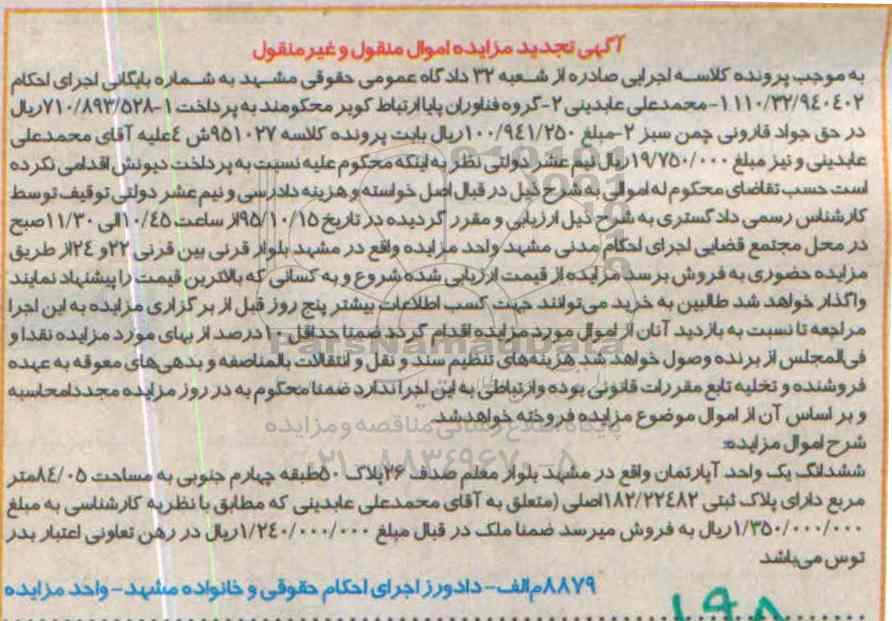 آگهی تجدید مزایده اموال منقول و غیر منقول
به موجب پرونده کلاسه اجرایی صادره از شعبه ۳۲ دادگاه عمومی حقوقی مشهد به شماره بایگانی اجرای احکام
۱۱۱۰/۳۲/۹۴۰۴۰۲-محمدعلی عابدینی ۲-گروه فناوران پایا ارتباط کویر محکومند به پرداخت ۱-۷۱۰/۸۹۳/۵۲۸ریال
در حق جواد قارونی چمن سبز ۲-مبلغ ۱۰۰/۹۴۱/۲۵۰ریال بابت پرونده کلاسه ۹۵۱۰۲۷ش ٤علیه آقای محمدعلی
عابدینی و نیز مبلغ ۱۹/۷۵۰/۰۰۰ریال نیم عشر دولتی نظر به اینکه محکوم علیه نسبت به پرداخت دیونش اقدامی نکرده
است حسب تقاضای محکوم له اموالی به شرح ذیل در قبال اصل خواسته و هزینه دادرسی و نیم عشر دولتی توقیف توسط
کارشناس رسمی دادگستری به شرح ذیل ارزیابی و مقرر گردیده در تاریخ ۹۵/۱۰/۱۵از ساعت ۱۰/٤۵الی ۱۱/۳۰صبح
در محل مجتمع قضایی اجرای احکام مدنی مشهد واحد مزایده واقع در مشهد بلوار قرنی بین قرنی ۲۲و ۲٤از طریق
مزایده حضوری به فروش برسد مزایده از قیمت ارزیابی شده شروع و به کسانی که بالاترین قیمت را پیشنهاد نمایند
واگذار خواهد شد طالبین به خرید می‌توانند جهت کسب اطلاعات بیشتر پنج روز قبل از برگزاری مزایده به این اجرا
مراجعه تا نسبت به بازدید آنان از اموال مورد مزایده اقدام گردد ضمنا حداقل ۱۰درصد از بهای مورد مزایده نقدا و
فی‌المجلس از برنده وصول خواهد شد هزینه‌های تنظیم سند و نقل و انتقالات بالمناصفه و بدهی‌های معوقه به عهده
فروشنده و تخلیه تابع مقررات قانونی بوده و ارتباطی به این اجرا ندارد ضمنا محکوم به در روز مزایده مجددا محاسبه
و بر اساس آن از اموال موضوع مزایده فروخته خواهد شد.
شرح اموال مزایده:
ششدانگ یک واحد آپارتمان واقع در مشهد بلوار معلم صدف ۲۶پلاک ۵۰طبقه چهارم جنوبی به مساحت ۸٤/۰۵متر
مربع دارای پلاک ثبتی ۱۸۲/۲۲٤۸۲اصلی (متعلق به آقای محمدعلی عابدینی که مطابق با نظریه کارشناسی به مبلغ
۱/۳۵۰/۰۰۰/۰۰۰ریال به فروش میرسد ضمنا ملک در قبال مبلغ ۱/۲٤۰/۰۰۰/۰۰۰ریال در رهن تعاونی اعتبار بدر
توس می‌باشد
۸۸۷۹م‌الف-دادورز اجرای احکام حقوقی و خانواده مشهد-واحد مزایده
ParsNamadData
پایگاه اطلاع رسانی مناقصه و مزایده
۰۲۱-۸۸۳٤۹۶۷۰-۵
۱۹۸